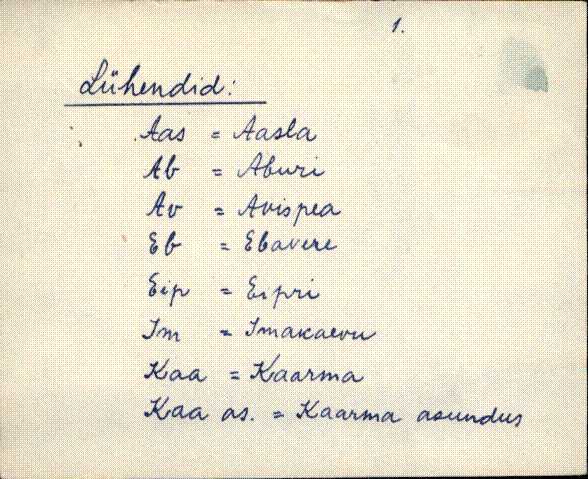 1.
Lühendid:
Aas = Aasla
Ab = Aburi
Av = Avispea
Eb = Ebavere
Eip = Eipri
Im = Imakaevu
Kaa = Kaarma
Kaa as. = Kaarma asundus